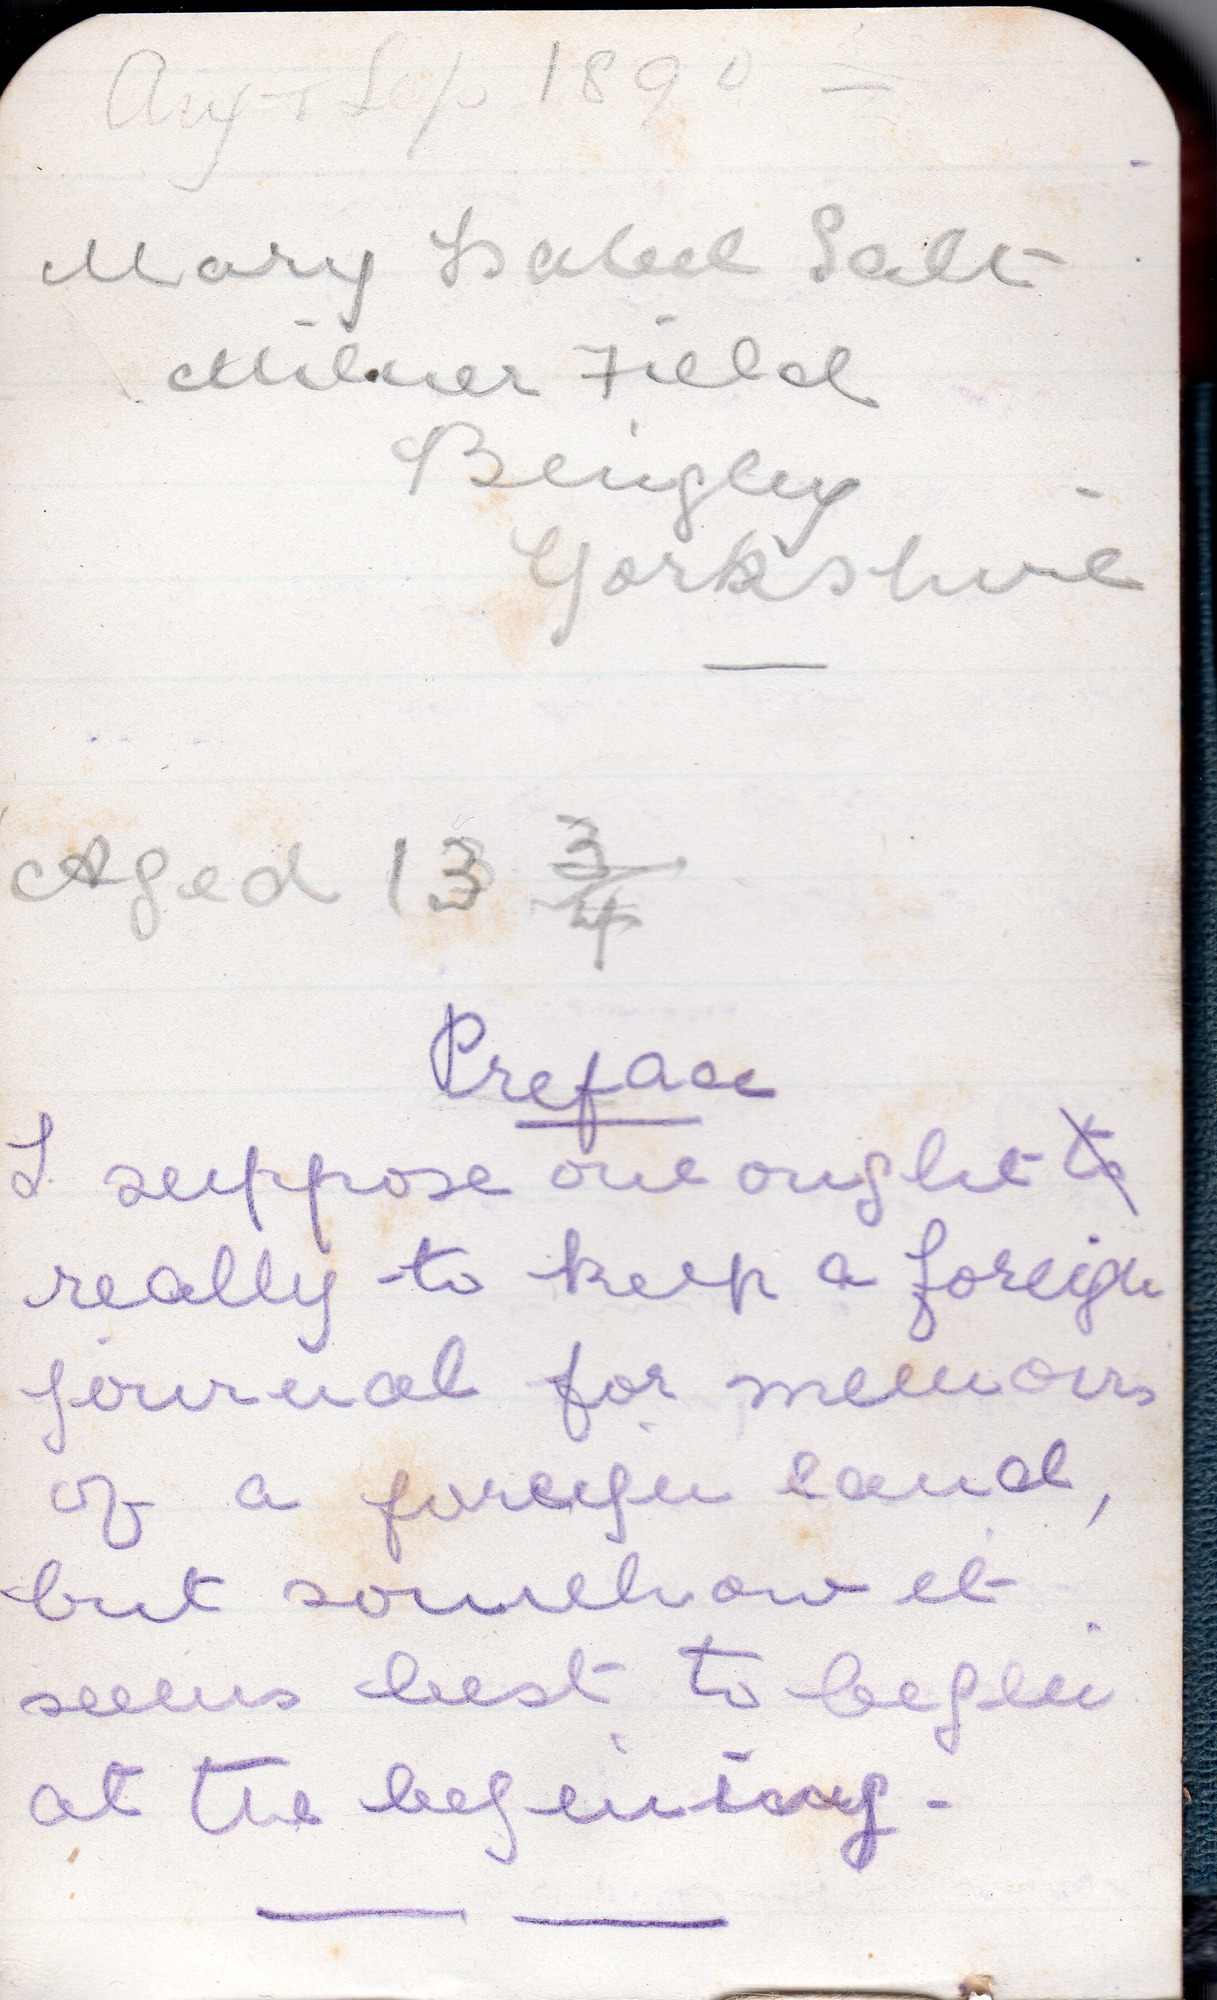 Aug & Sep 1890
Mary Isabel Salt
Milner Field
Bingley
Yorkshire
Aged 13 3/4
Preface
I suppose one ought to
really to keep a foreign
journal for memoirs
of a foreign land,
but somehow it
seems best to begin
at the begining -